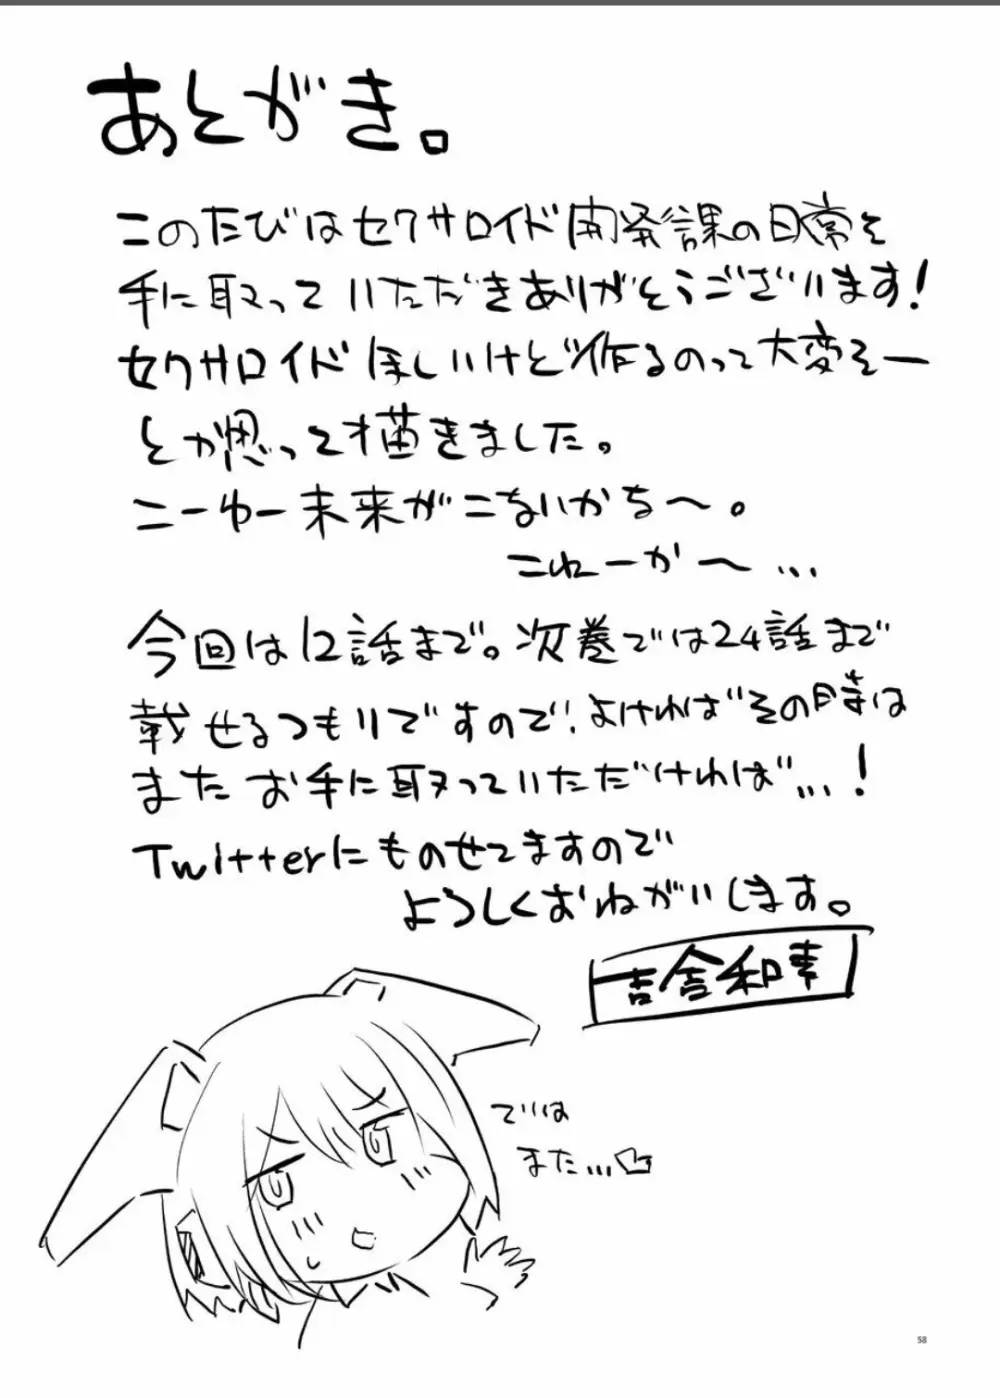 あとがき。
このたびはセクサロイド開発課の日常を
手に取っていただきありがとうございます！
セクサロイドほしいけど作るのって大変そー
とか思って描きました。
こーゆー未来がこないかな～。
こねーか～…
今回は12話まで。次巻では24話まで
載せるつもりですので、よければその時は
またお手に取っていただければ…！
Twitterにものせてますので
よろしくおねがいします。
吉舎和幸
では
また…
58